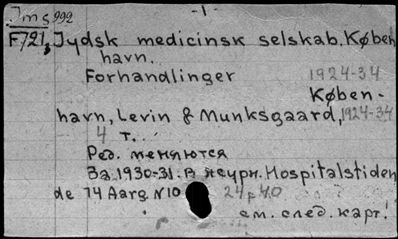 Jms 992
- 1 -
F721, Jydsk medicinsk selskab. Køben
havn.
Forhandlinger 1924-34
Køben-
havn, Levin & Munksgaard, 1924-34
4 т.
Ред. меняются
За 1930-31. в журн. Hospitalstiden
de 74 Aarg. N10 24 р 40
см. след. карт!